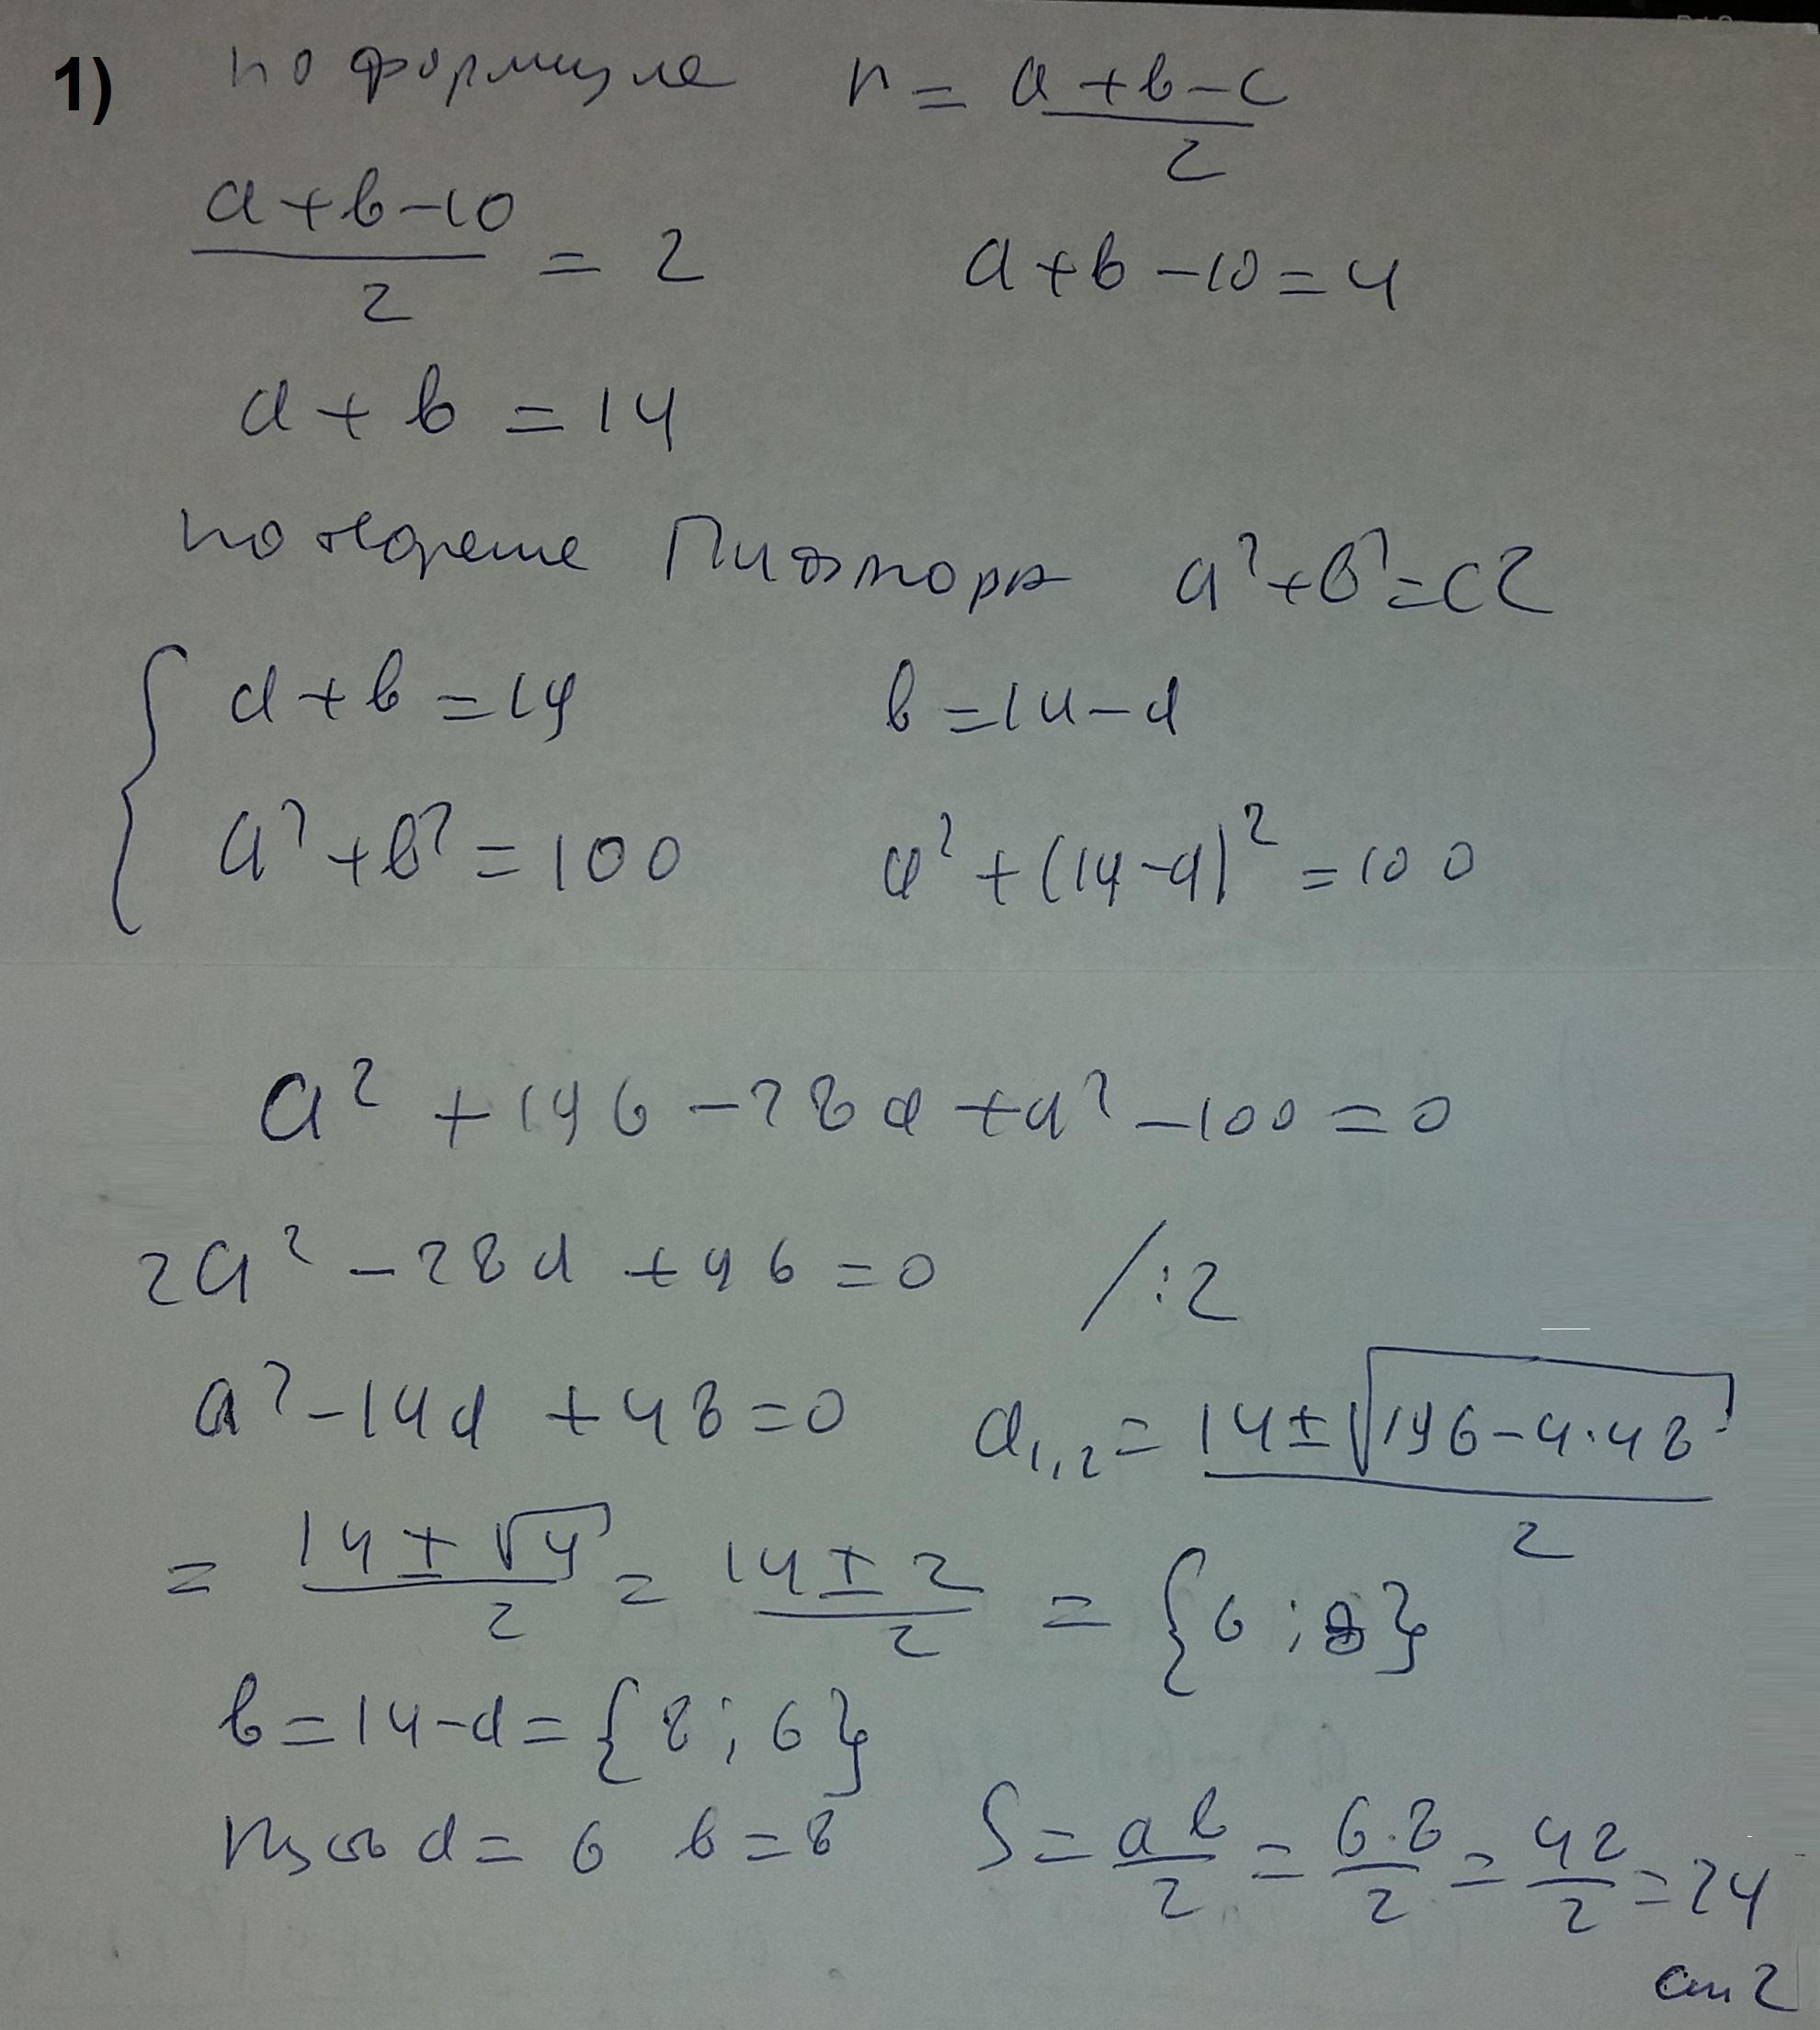 1) по формуле r = (a+b-c)/2
(a+b-10)/2 = 2 a+b-10=4
a+b=14
по теореме Пифагора a²+b²=c2
{ a+b=14 b=14-a
a²+b²=100 a²+(14-a)²=100
a²+196-28a+a²-100=0
2a²-28a+96=0 /:2
a²-14a+48=0 a₁,₂=(14±√(196-4·48))/2
= (14±√4)/2 = (14±2)/2 = {6;8}
b=14-a={8;6}
Пусть a=6 b=8 S=ab/2=6·8/2=48/2=24
cm2